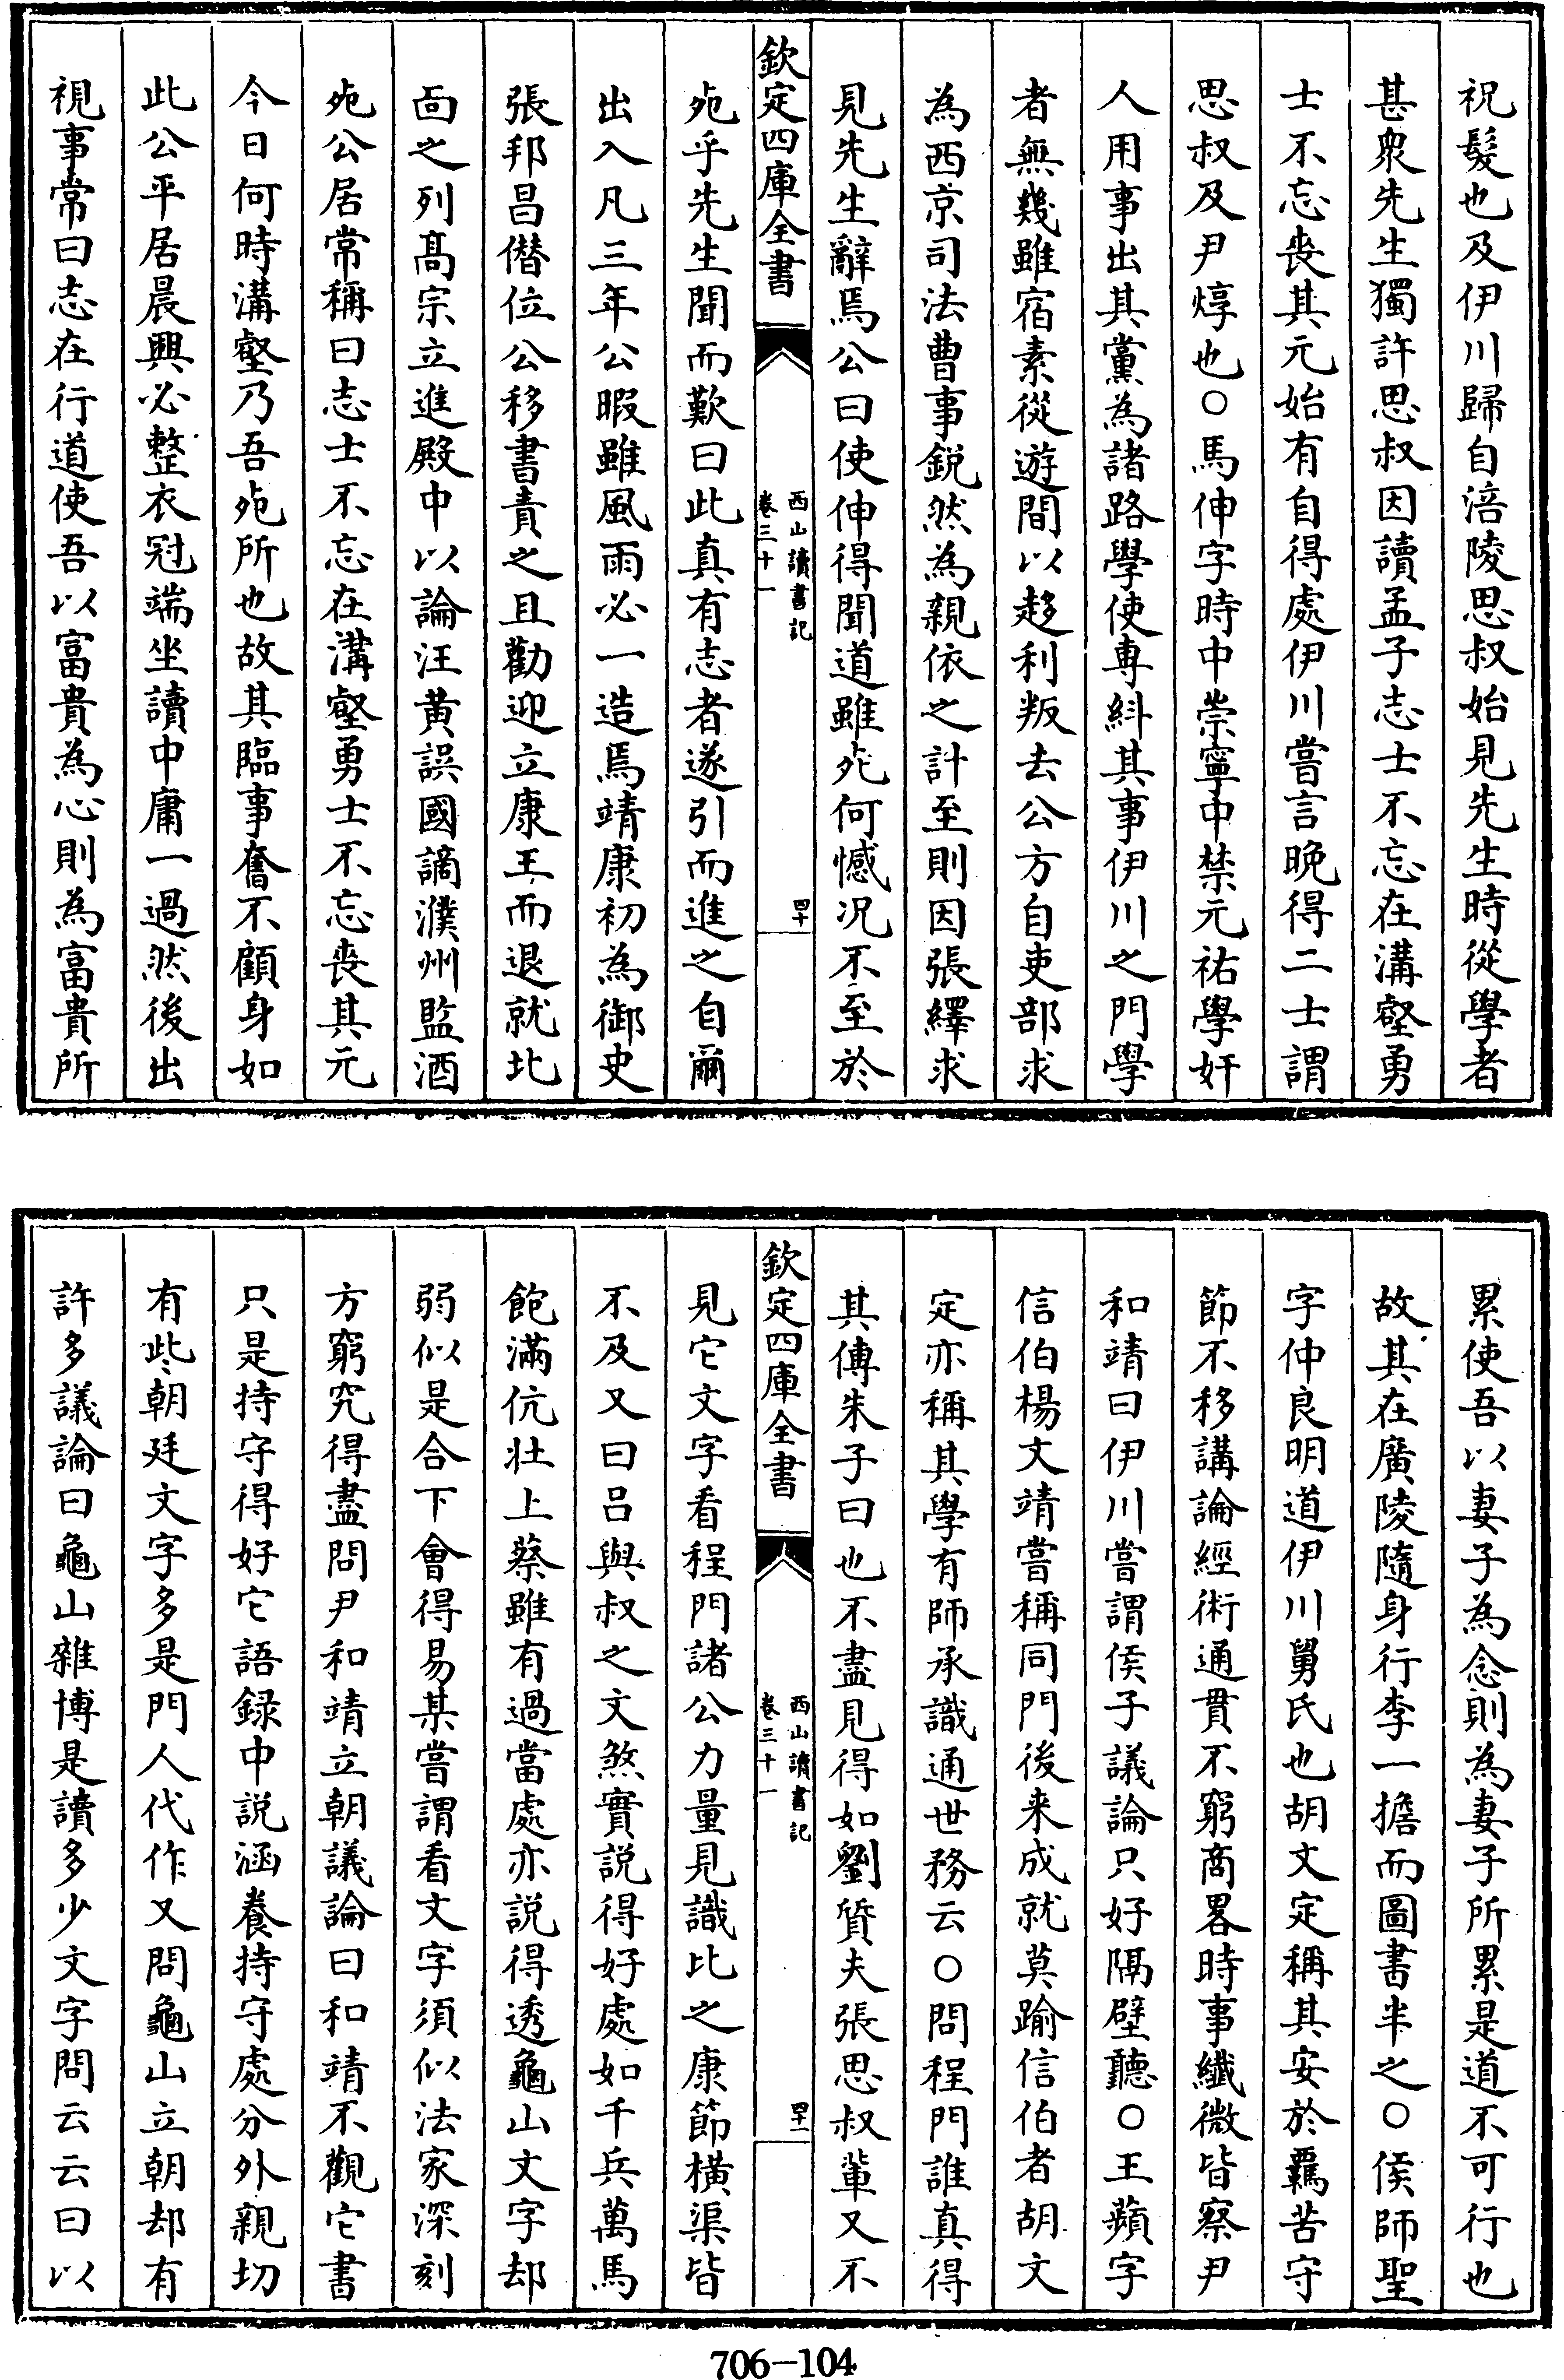 祝髮也及伊川歸自涪陵思叔始見先生時從學者
甚衆先生獨許思叔因讀孟子志士不忘在溝壑勇
士不忘喪其元始有自得處伊川嘗言晚得二士謂
思叔及尹焞也○馬伸字時中崇寧中禁元祐學奸
人用事出其黨為諸路學使專糾其事伊川之門學
者無幾雖宿素從遊間以趍利叛去公方自吏部求
為西京司法曹事銳然為親依之計至則因張繹求
見先生辭焉公曰使伸得聞道雖死何憾況不至於
欽定四庫全書
西山讀書記
卷三十一
四十
死乎先生聞而歎曰此真有志者遂引而進之自爾
出入凡三年公暇雖風雨必一造焉靖康初為御史
張邦昌僭位公移書責之且勸迎立康王而退就北
面之列高宗立進殿中以論汪黃誤國謫濮州監酒
死公居常稱曰志士不忘在溝壑勇士不忘喪其元
今日何時溝壑乃吾死所也故其臨事奮不顧身如
此公平居晨興必整衣冠端坐讀中庸一過然後出
視事常曰志在行道使吾以富貴為心則為富貴所
累使吾以妻子為念則為妻子所累是道不可行也
故其在廣陵隨身行李一擔而圖書半之○侯師聖
字仲良明道伊川舅氏也胡文定稱其安於羈苦守
節不移講論經術通貫不窮商畧時事纎微皆察尹
和靖曰伊川嘗謂侯子議論只好隔壁聽○王蘋字
信伯楊文靖嘗稱同門後来成就莫踰信伯者胡文
定亦稱其學有師承識通世務云○問程門誰真得
其傳朱子曰也不盡見得如劉質夫張思叔輩又不
欽定四庫全書
西山讀書記
卷三十一
四十一
見它文字看程門諸公力量見識比之康節橫渠皆
不及又曰呂與叔之文煞實說得好處如千兵萬馬
飽滿伉壯上蔡雖有過當處亦説得透龜山文字却
弱似是合下會得易某嘗謂看文字須似法家深刻
方窮究得盡問尹和靖立朝議論曰和靖不觀它書
只是持守得好它語録中説涵養持守處分外親切
有此朝廷文字多是門人代作又問龜山立朝却有
許多議論曰龜山雜博是讀多少文字問云云曰以
706-104